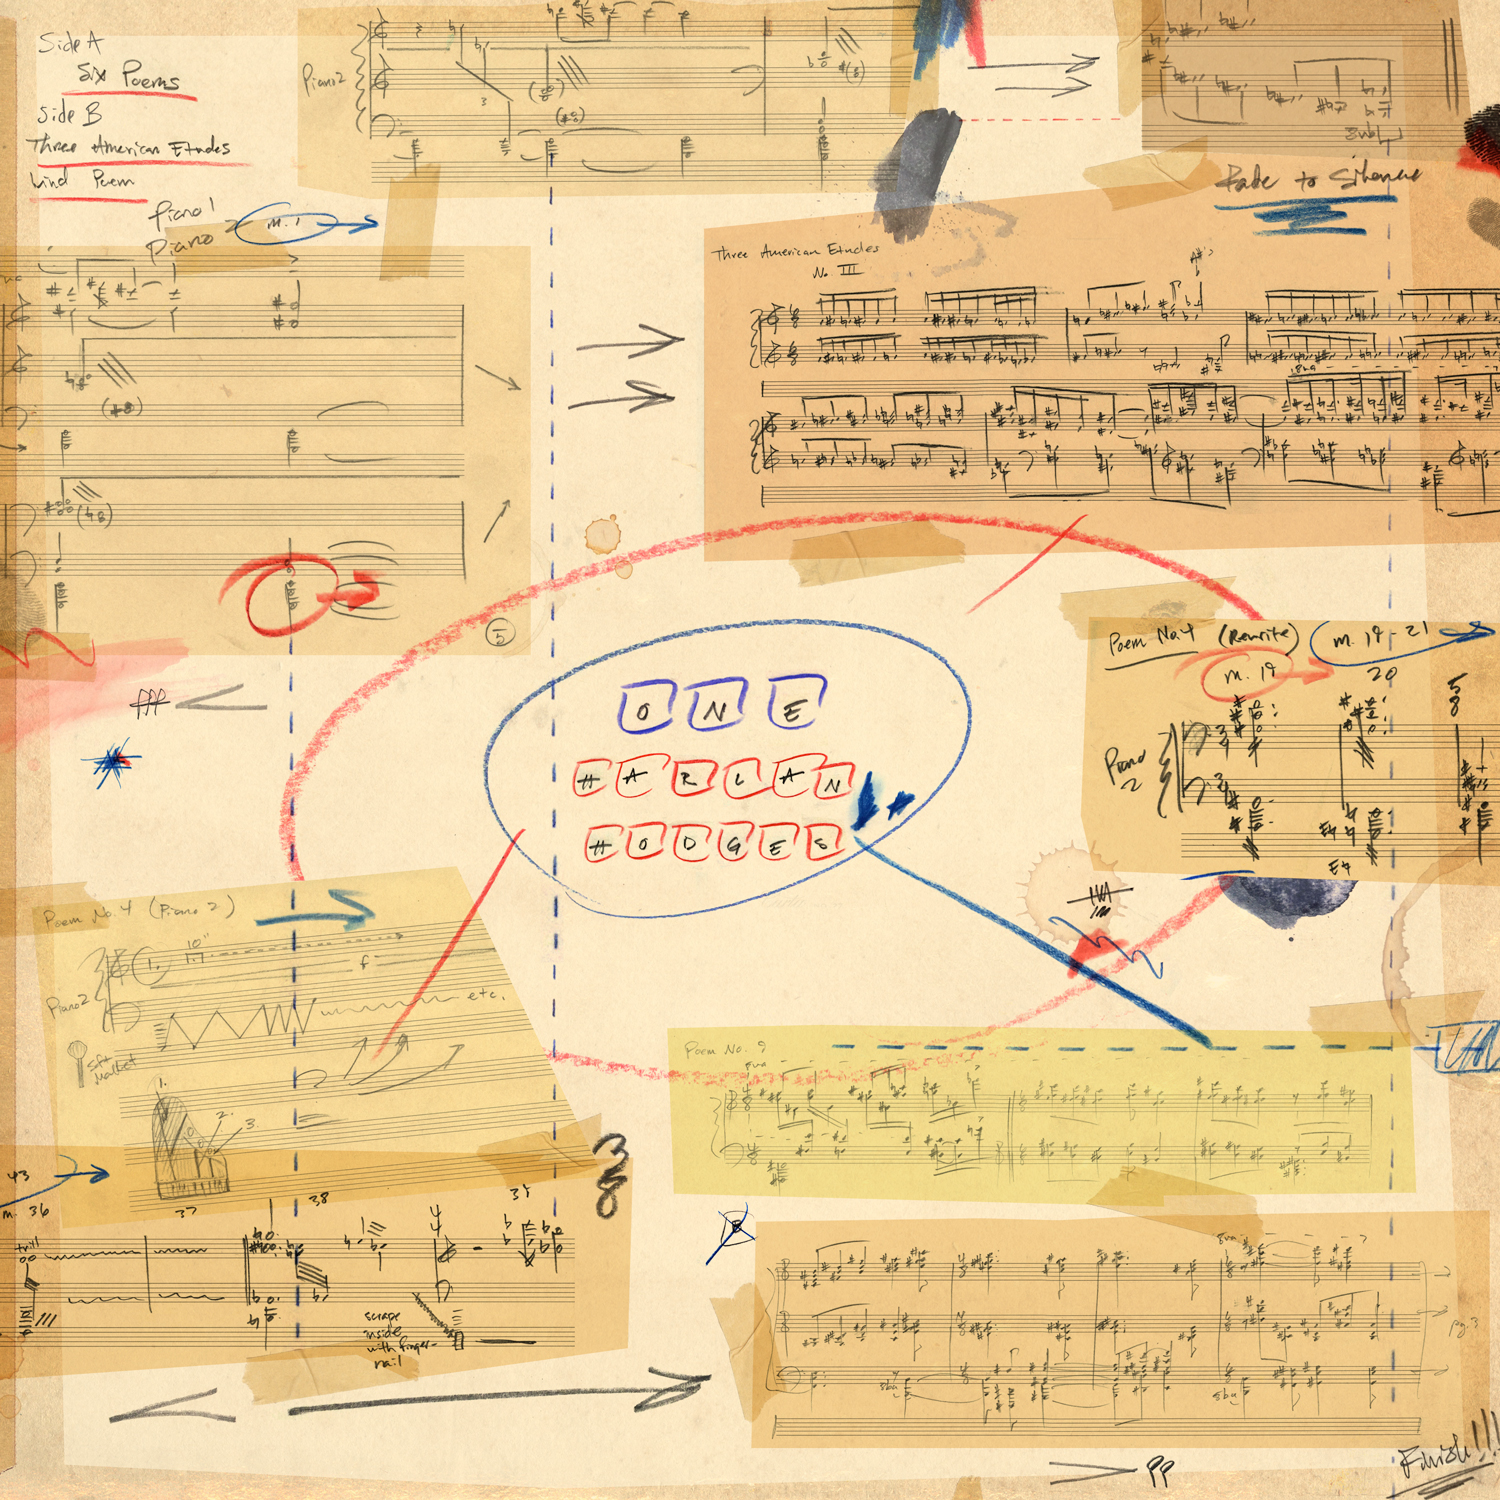 Side A
Six Poems
Side B
Three American Etudes
Wind Poem
Piano 1
Piano 2
m. 1
Piano 2
3
Fade to Silence
Three American Etudes
No III
5
ONE
HARLAN
HODGES
Poem No. 4 (Rewrite)
m. 19-21
m. 19
20
Piano
2
Poem No. 4 (Piano 2)
1.
10"
f
Piano 2
etc.
soft
mallet
1.
2.
3.
43
m. 36
37
38
trill
scrape
inside
with finger-
nail
Poem No. 9
8va
8va
8ba
8ba
pg. 3
pp
Finish!!!